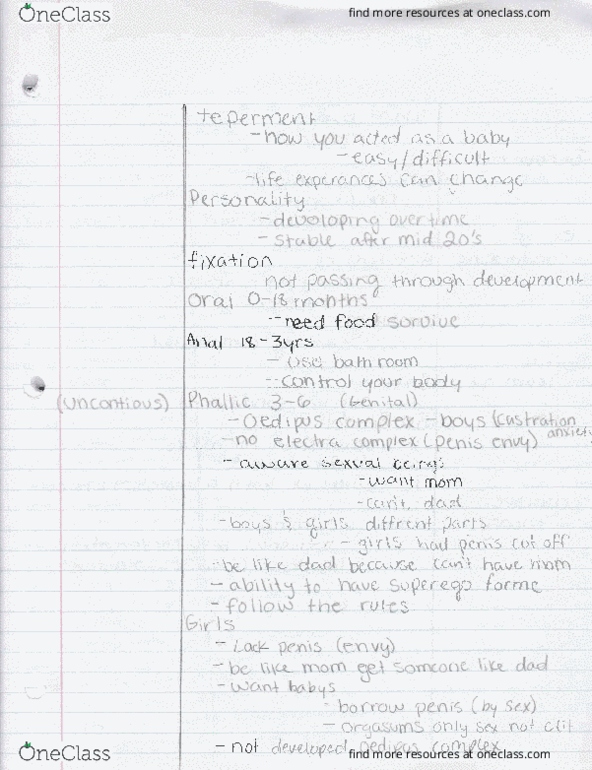 OneClass
find more resources at oneclass.com
teperment
- how you acted as a baby
- easy/difficult
- life experances can change
Personality
- developing over time
- stable after mid 20's
fixation
not passing through development
Oral 0-18 months
- need food survive
Anal 18-3yrs
- use bathroom
- control your body
(Uncontious) Phallic 3-6 (Genital)
- Oedipus complex - boys (castration anxiety
- no electra complex (penis envy)
- aware sexual
- want mom
- can't, dad
- boys & girls diffrent parts
- girls had penis cut off
be like dad because can't have mom
- ability to have superego forme
- follow the rules
Girls
- Lack penis (envy)
- be like mom get someone like dad
- want babys
borrow penis (by sex)
- orgasums only sex not clit
- not developed oedipus complex
OneClass
find more resources at oneclass.com